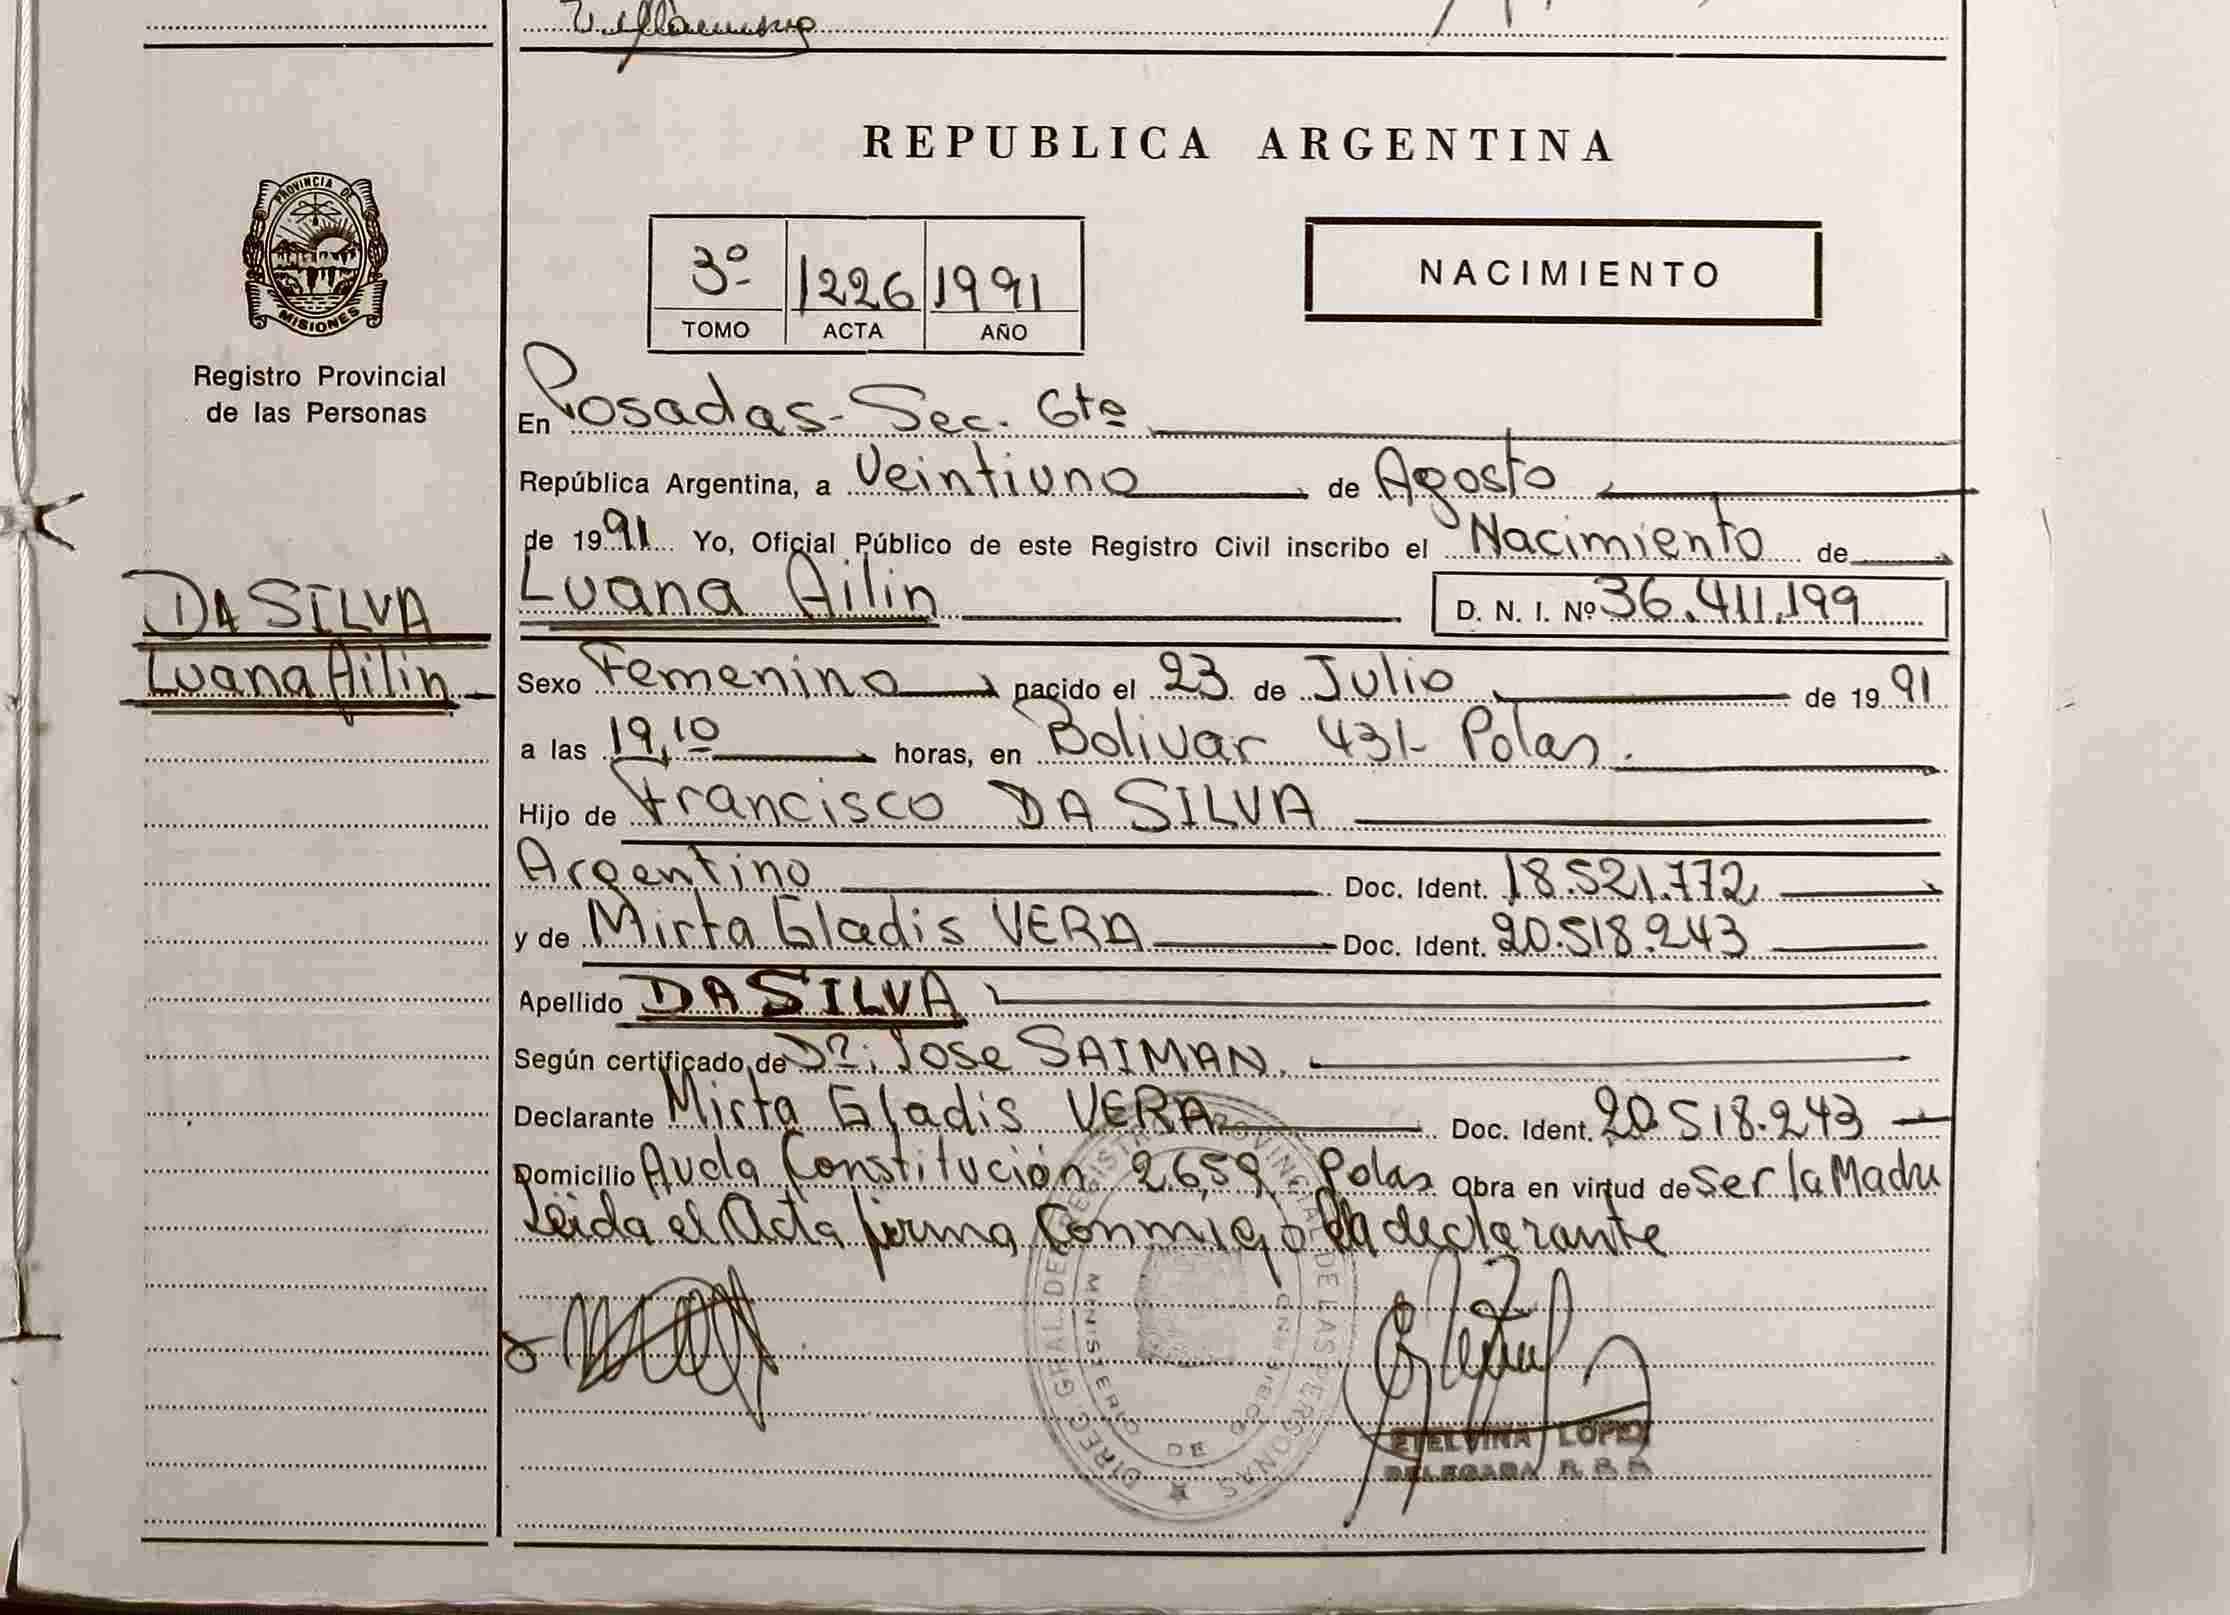 REPUBLICA ARGENTINA
PROVINCIA DE
MISIONES
Registro Provincial
de las Personas
3º 1226 1991
TOMO ACTA AÑO
NACIMIENTO
En Posadas - Sec. 6ta
República Argentina, a Veintiuno de Agosto
de 1991 Yo, Oficial Público de este Registro Civil inscribo el Nacimiento de
DA SILVA
Luana Ailin
Luana Ailin D. N. I. Nº 36.411.199
Sexo Femenino nacido el 23 de Julio de 1991
a las 19,10 horas, en Bolivar 431- Pdas.
Hijo de Francisco DA SILVA
Argentino Doc. Ident. 18.521.772
y de Mirta Gladis VERA Doc. Ident. 20.518.243
Apellido DA SILVA
Según certificado de Dr. Jose SAIMAN.
Declarante Mirta Gladis VERA Doc. Ident. 20.518.243
Domicilio Avda Constitución 2659 Pdas Obra en virtud de Ser la Madre
Leida el Acta firma Conmigo la declarante
DIREC. GRAL. DE REGISTRO PROVINCIAL DE LAS PERSONAS
MINISTERIO DE GOBIERNO
ETELVINA LOPEZ
DELEGADA R. P. P.